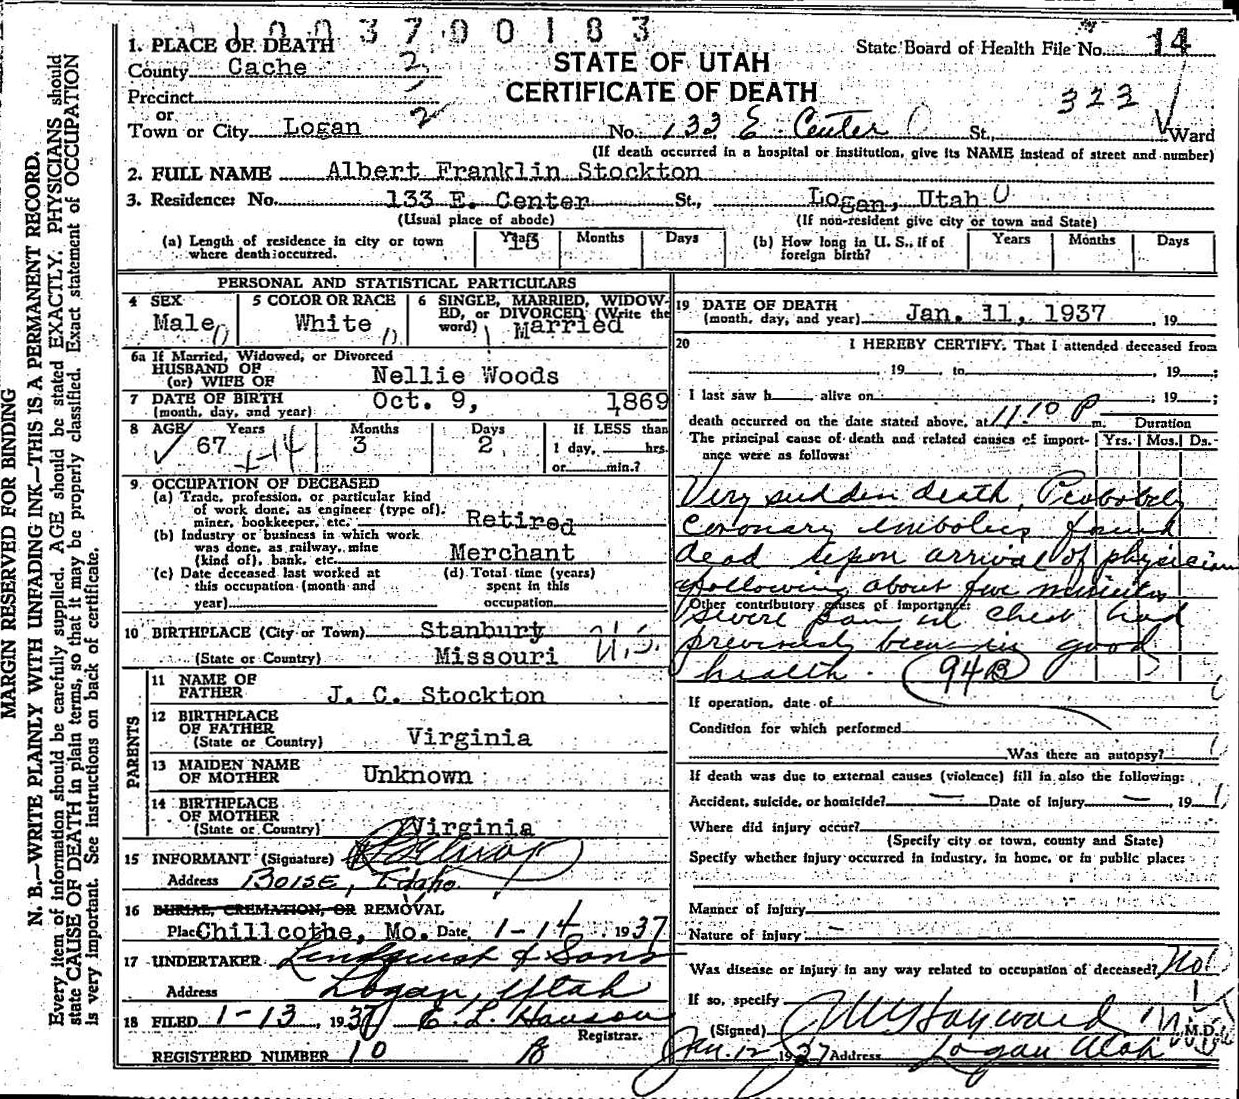 1003700183
1. PLACE OF DEATH
County Cache
Precinct
or
Town or City Logan
STATE OF UTAH
CERTIFICATE OF DEATH
State Board of Health File No. 14
323
No. 133 E. Center St., Ward
(If death occurred in a hospital or institution, give its NAME instead of street and number)
2. FULL NAME Albert Franklin Stockton
3. Residence: No. 133 E. Center St., Logan, Utah
(Usual place of abode) (If non-resident give city or town and State)
(a) Length of residence in city or town where death occurred. Years Months Days
(b) How long in U. S., if of foreign birth? Years Months Days
PERSONAL AND STATISTICAL PARTICULARS
4 SEX
Male
5 COLOR OR RACE
White
6 SINGLE, MARRIED, WIDOW-
ED, or DIVORCED (Write the
word) Married
6a If Married, Widowed, or Divorced
HUSBAND OF
(or) WIFE OF Nellie Woods
7 DATE OF BIRTH
(month, day, and year) Oct. 9, 1869
8 AGE Years Months Days If LESS than
67 3 2 1 day, hrs.
or min.?
9. OCCUPATION OF DECEASED
(a) Trade, profession, or particular kind
of work done, as engineer (type of),
miner, bookkeeper, etc. Retired
(b) Industry or business in which work
was done, as railway, mine
(kind of), bank, etc. Merchant
(c) Date deceased last worked at
this occupation (month and
year)
(d) Total time (years)
spent in this
occupation
10 BIRTHPLACE (City or Town) Stanbury
(State or Country) Missouri U.S.
PARENTS
11 NAME OF
FATHER J. C. Stockton
12 BIRTHPLACE
OF FATHER
(State or Country) Virginia
13 MAIDEN NAME
OF MOTHER Unknown
14 BIRTHPLACE
OF MOTHER
(State or Country) Virginia
15 INFORMANT (Signature)
Address BOISE, Idaho
16 BURIAL, CREMATION, OR REMOVAL
Place Chillcothe, Mo. Date 1-14, 1937
17 UNDERTAKER Lindquist & Sons
Address Logan, Utah
18 FILED 1-13, 1937 E. L. Hanson
Registrar.
REGISTERED NUMBER 10
19 DATE OF DEATH
(month, day, and year) Jan. 11, 1937, 19
20 I HEREBY CERTIFY, That I attended deceased from
, 19 , to , 19 ;
I last saw h alive on , 19 ;
death occurred on the date stated above, at 11:10 P m. Duration
The principal cause of death and related causes of import-
ance were as follows: Yrs. Mos. Ds.
Very sudden death, Probobely
coronary embolus found
dead upon arrival of physician
following about five minutes
Other contributory causes of importance:
severe pain in chest had
previously been in good
health. 94B
If operation, date of
Condition for which performed
Was there an autopsy?
If death was due to external causes (violence) fill in also the following:
Accident, suicide, or homicide? — Date of injury —, 19
Where did injury occur?
(Specify city or town, county and State)
Specify whether injury occurred in industry, in home, or in public place:
Manner of injury
Nature of injury —
Was disease or injury in any way related to occupation of deceased? No!
If so, specify
(Signed) Hayward M.D.
Jan. 12 1937 Address Logan Utah
MARGIN RESERVED FOR BINDING
N. B.—WRITE PLAINLY WITH UNFADING INK—THIS IS A PERMANENT RECORD.
Every item of information should be carefully supplied. AGE should be stated EXACTLY. PHYSICIANS should
state CAUSE OF DEATH in plain terms, so that it may be properly classified. Exact statement of OCCUPATION
is very important. See instructions on back of certificate.